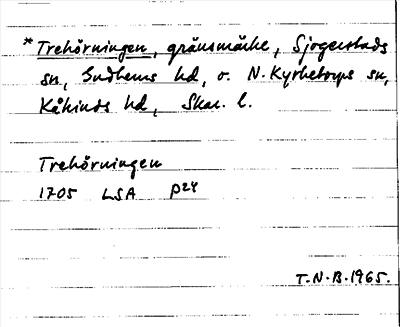 *Trehörningen, gränsmärke, Sjogerstads
sn, Gudhems hd, o. N. Kyrketorps sn,
Kåkinds hd, Skar. l.
Trehörningen
1705 LSA P24
T.N.B. 1965.